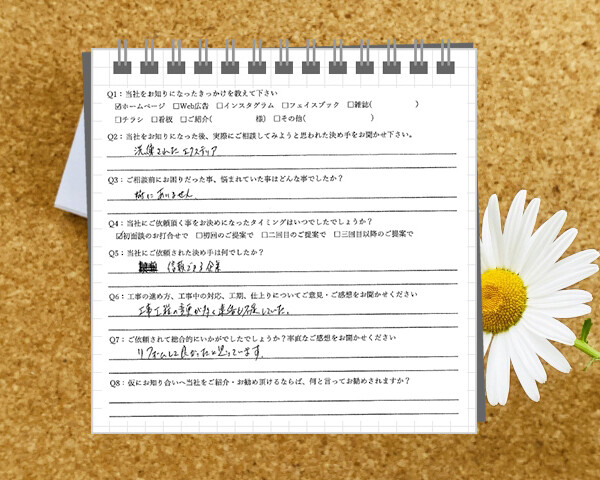 Q1：当社をお知りになったきっかけを教えて下さい
☑ホームページ □Web広告 □インスタグラム □フェイスブック □雑誌( )
□チラシ □看板 □ご紹介( 様) □その他( )
Q2：当社をお知りになった後、実際にご相談してみようと思われた決め手をお聞かせ下さい。
洗練されたエクステリア
Q3：ご相談前にお困りだった事、悩まれていた事はどんな事でしたか？
特にありません
Q4：当社にご依頼頂く事をお決めになったタイミングはいつでしたでしょうか？
☑初面談のお打合せで □初回のご提案で □二回目のご提案で □三回目以降のご提案で
Q5：当社にご依頼された決め手は何でしたか？
信頼できる企業
Q6：工事の進め方、工事中の対応、工期、仕上りについてご意見・ご感想をお聞かせください
工事工程の変更が多く連絡も不足していた。
Q7：ご依頼されて総合的にいかがでしたでしょうか？率直なご感想をお聞かせください
リフォームして良かったと思っています。
Q8：仮にお知り合いへ当社をご紹介・お勧め頂けるならば、何と言ってお勧めされますか？